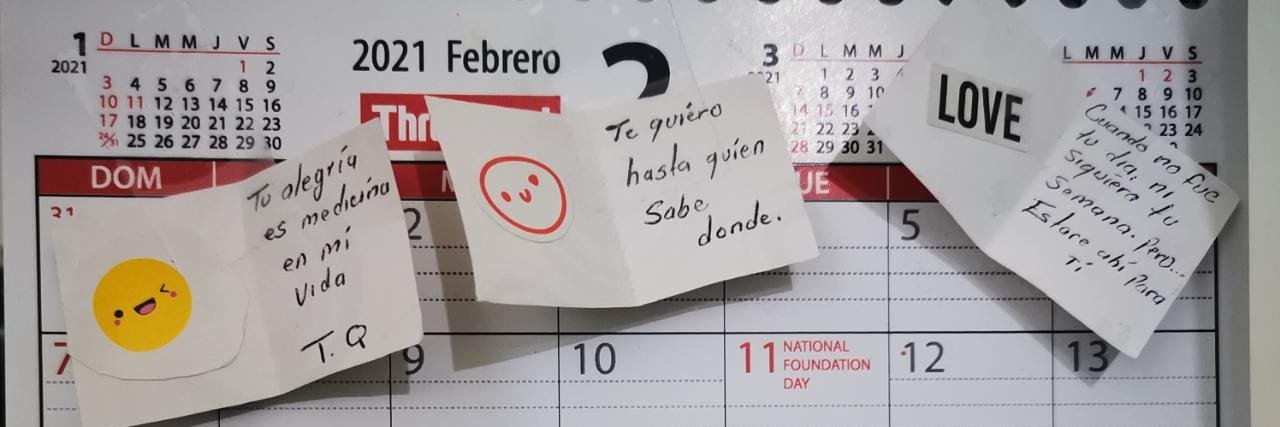 1
2021
D L M M J V S
1 2
3 4 5 6 7 8 9
10 11 12 13 14 15 16
17 18 19 20 21 22 23
24/31 25 26 27 28 29 30
2021 Febrero
2
3
D L M M J
1 2 3
7 8 9 10
14 15 16
21 22 23
28 29 30 31
L M M J V S
1 2 3
7 8 9 10
15 16 17
23 24
DOM
31
Tu alegría
es medicina
en mi
vida
T.Q
Te quiero
hasta quien
Sabe
donde.
LOVE
Cuando no fue
tu dia, ni tu
Siquiera tu
Semana. Pero...
Estare ahí Para
Tí
2
5
7
9
10
11 NATIONAL
FOUNDATION
DAY
12
13